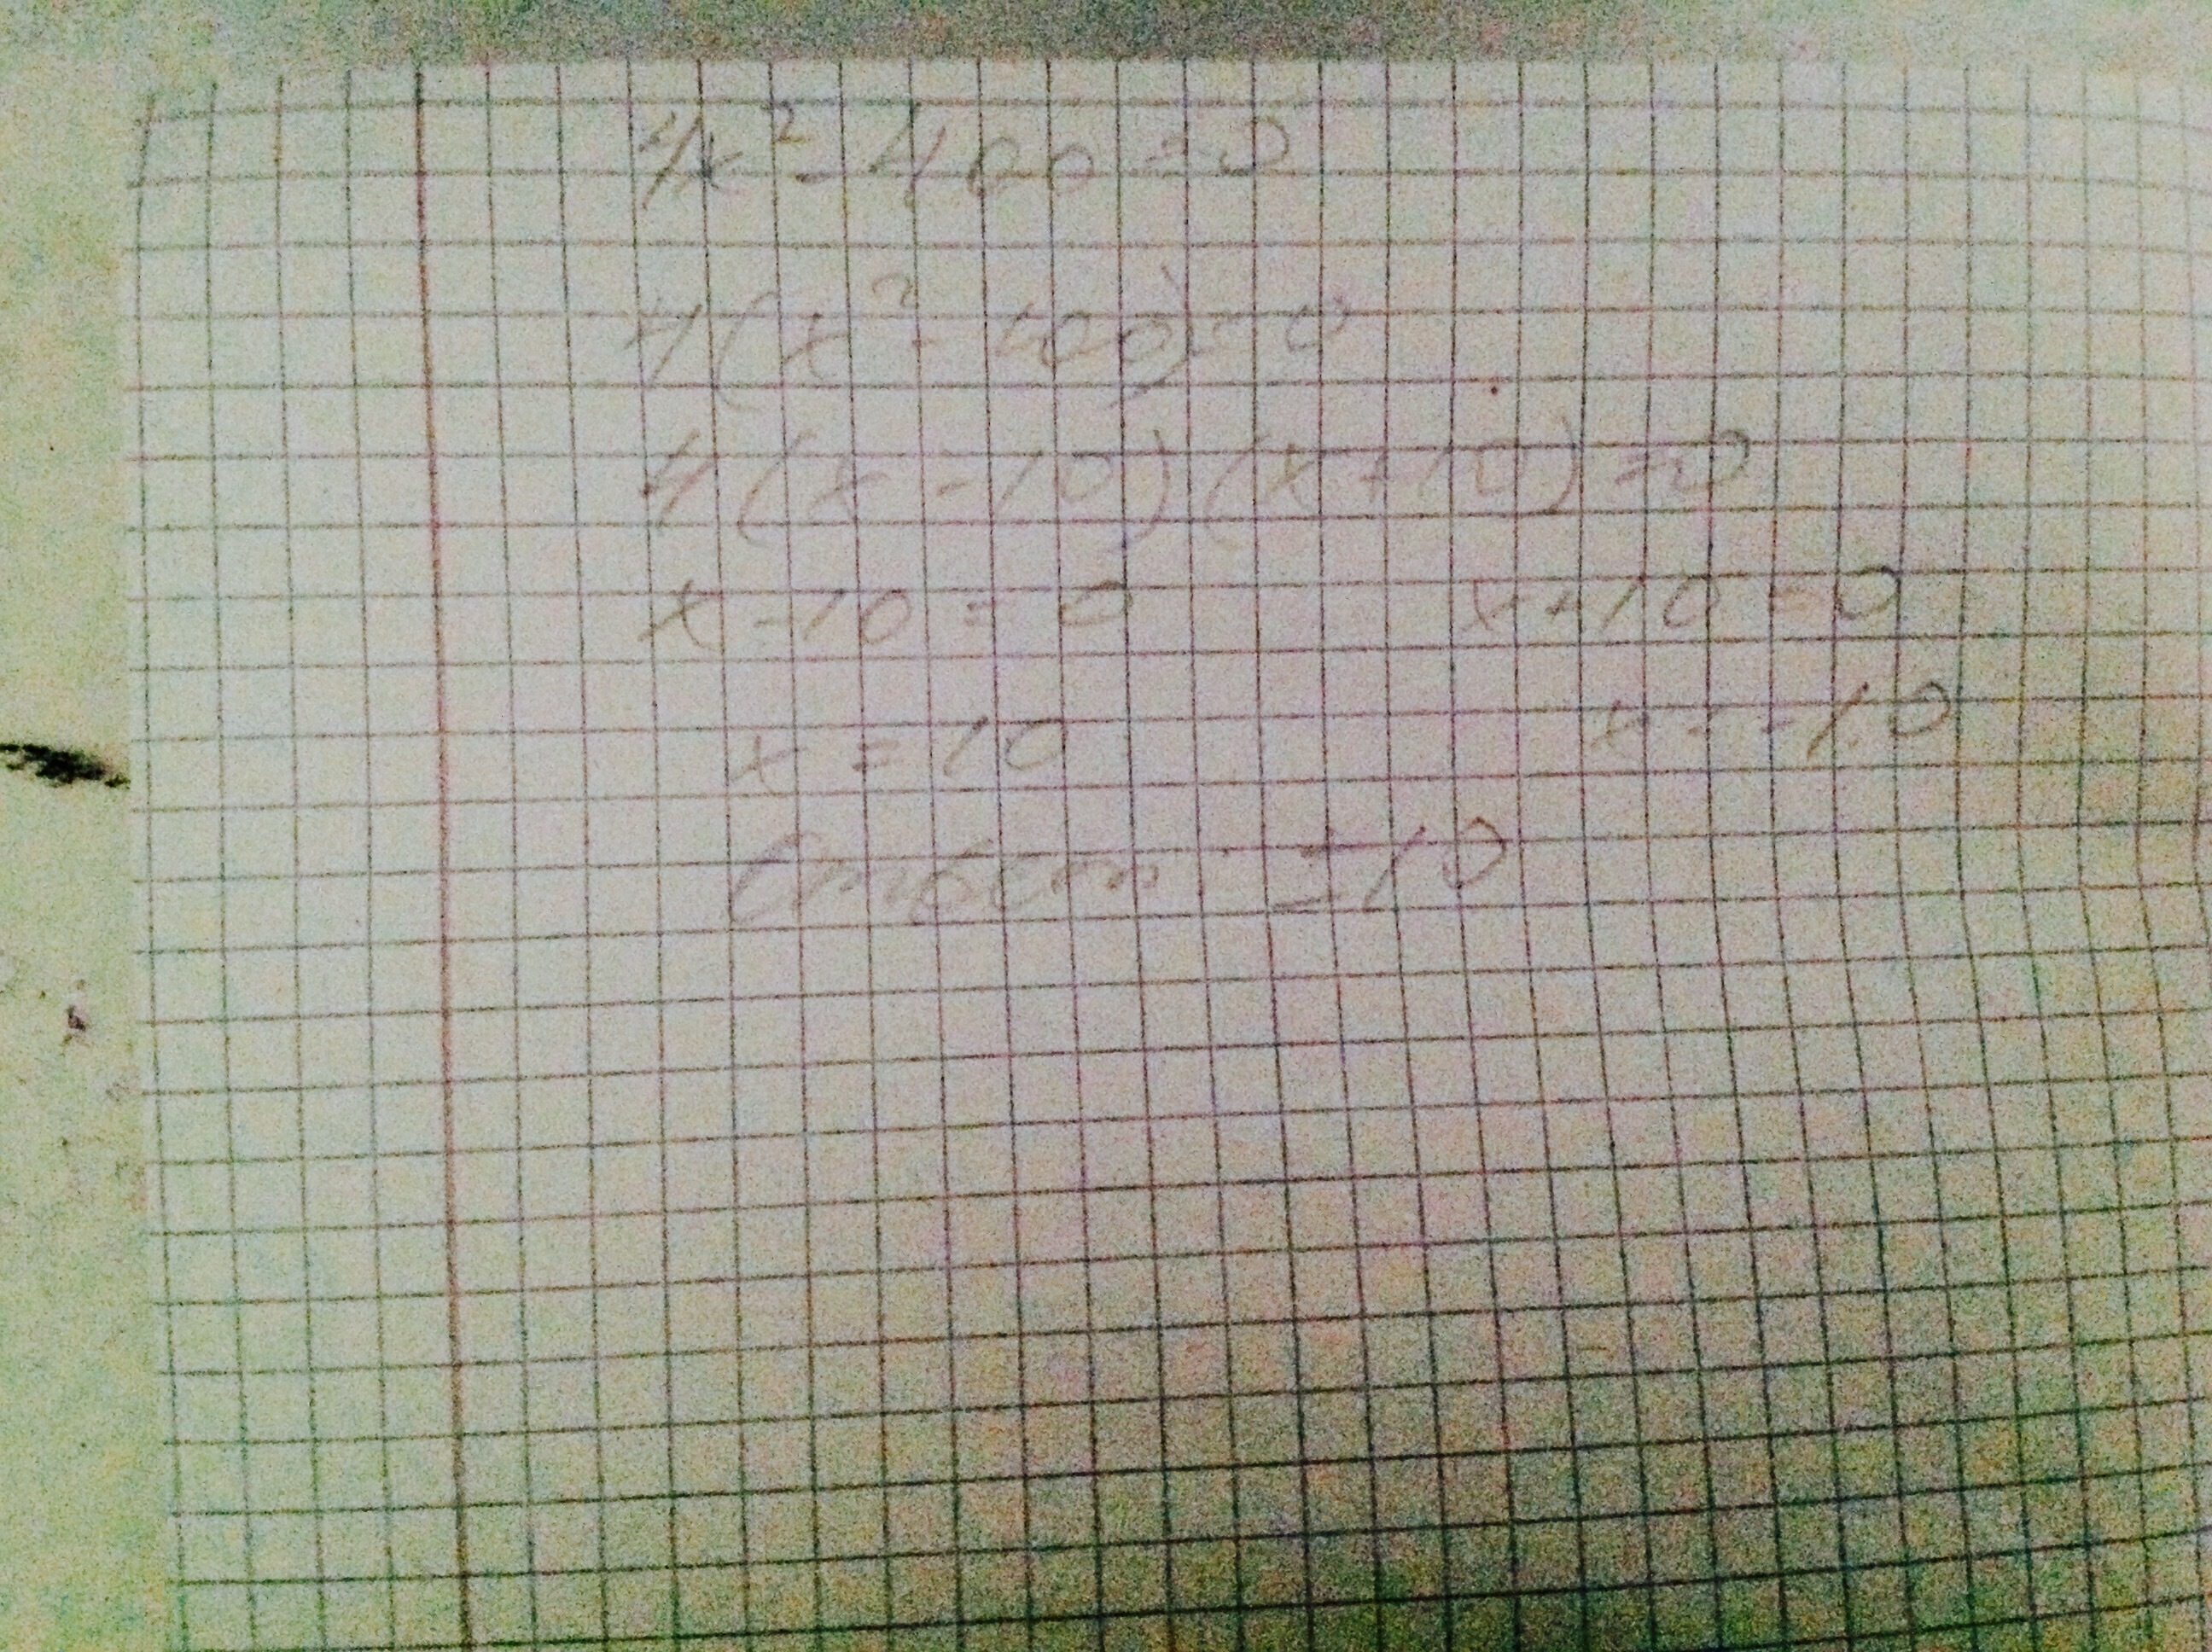 4x² - 400 = 0
4(x² - 100) = 0
4(x - 10)(x + 10) = 0
x - 10 = 0 x + 10 = 0
x = 10 x = -10
Ответ: ±10